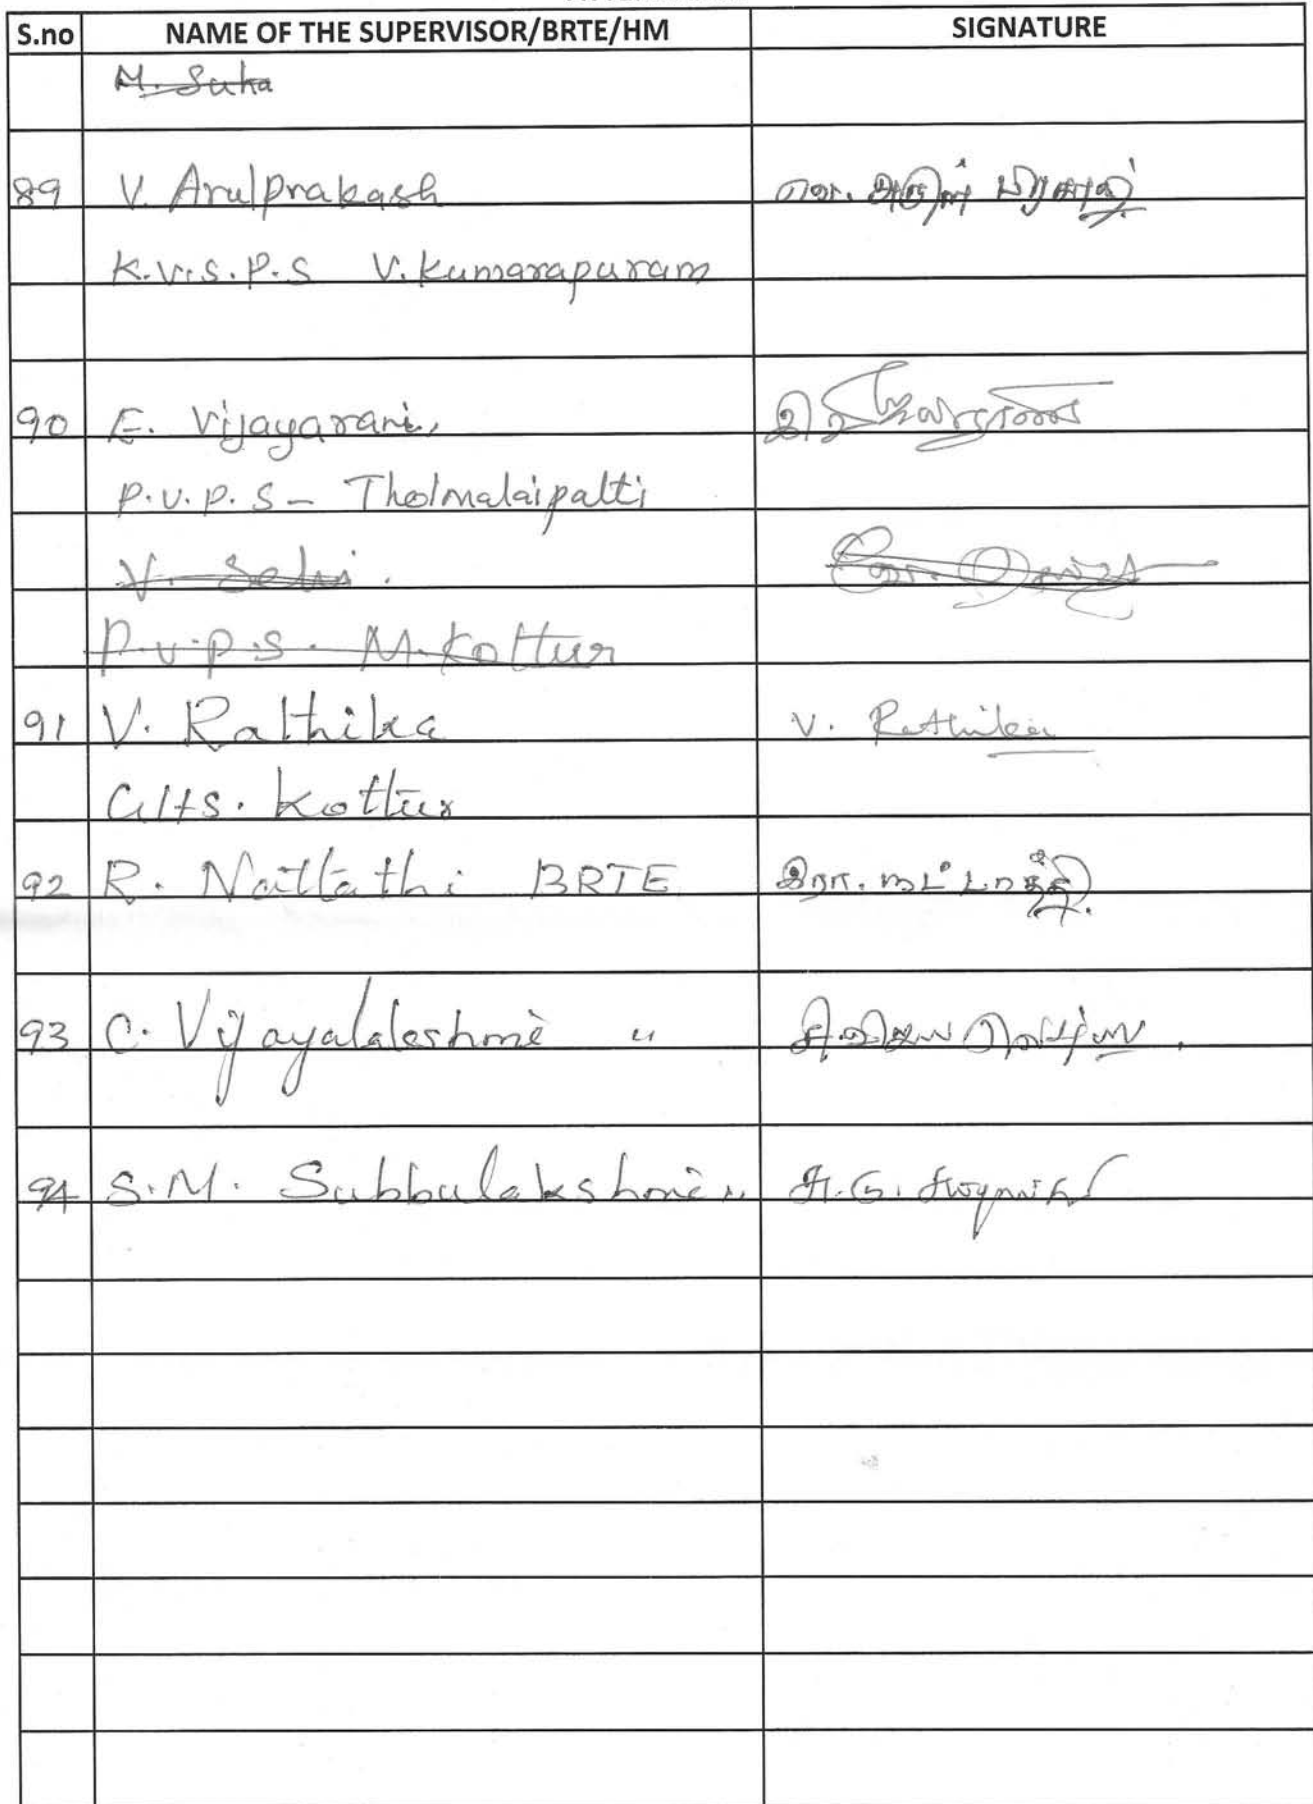 S.no NAME OF THE SUPERVISOR/BRTE/HM SIGNATURE
M. Suka
89 V. Arulprakash
K.V.S.P.S V. Kumarapuram
90 E. Vijayarani,
P.V.P.S - Tholmalaipatti
V. Selvi.
P.V.P.S. M. Kottur
91 V. Rathika V. Rathika
GHS. Kottur
92 R. Nattathi BRTE இரா. நட்டாத்தி.
93 C. Vijayalakshmi "
94 S.M. Subbulakshmi "